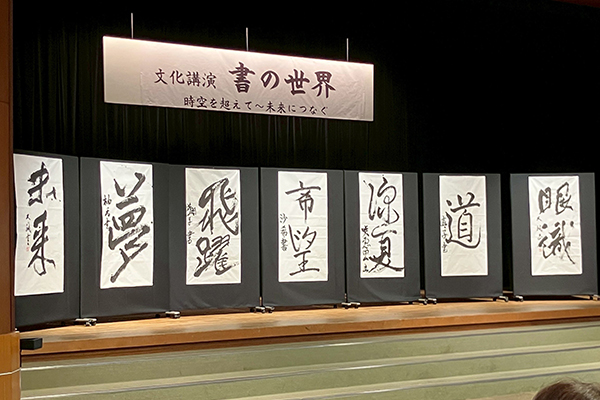 文化講演 書の世界
時空を超えて～未来につなぐ
未来
夢
飛躍
希望
道
眼識